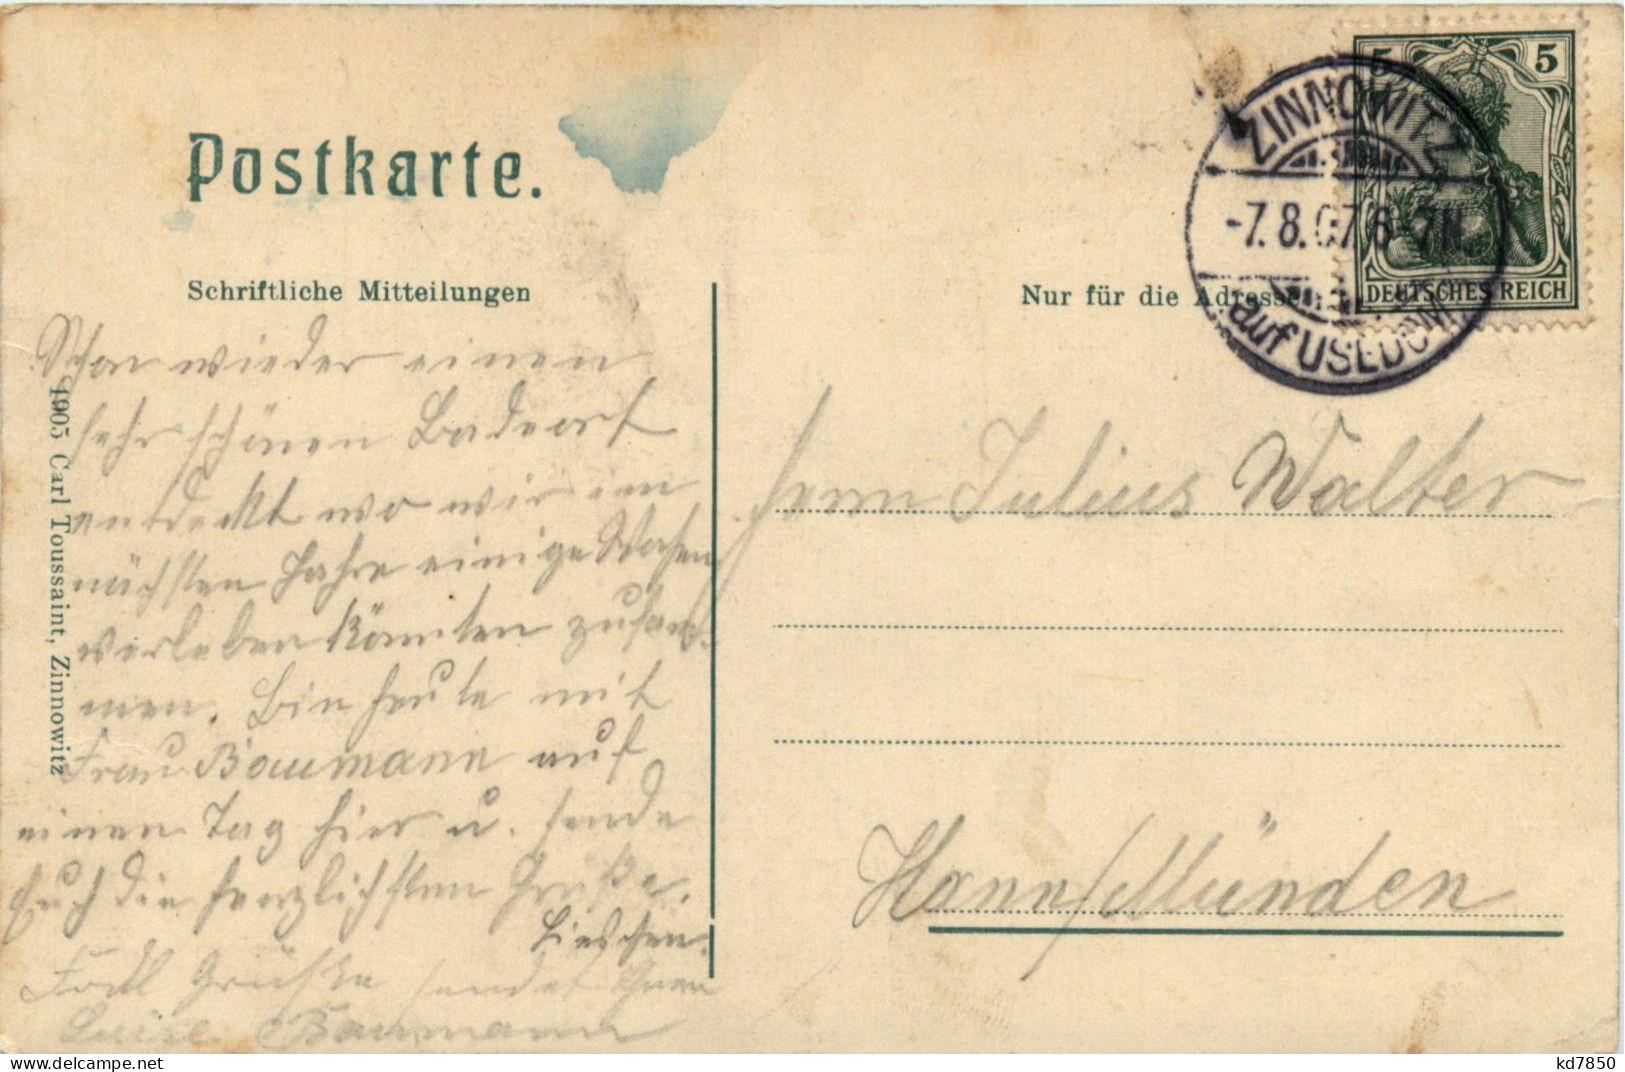 Postkarte.
Schriftliche Mitteilungen
Nur für die Adresse
ZINNOWITZ
-7.8.07.6-7N.
auf USEDOM
5 5
DEUTSCHES REICH
1905 Carl Toussaint, Zinnowitz
Schon wieder einen
sehr schönen Badeort
entdeckt wo wir im
nächsten Jahre einige Wochen
verleben könnten zusam-
men. Bin heute mit
Frau Baumann auf
einen Tag hier u. sende
Euch die herzlichsten Grüße.
Lieschen.
Frdl Grüße sendet Ihnen
Luise Baumann
Herrn Julius Walter
Hann/Münden
kd7850